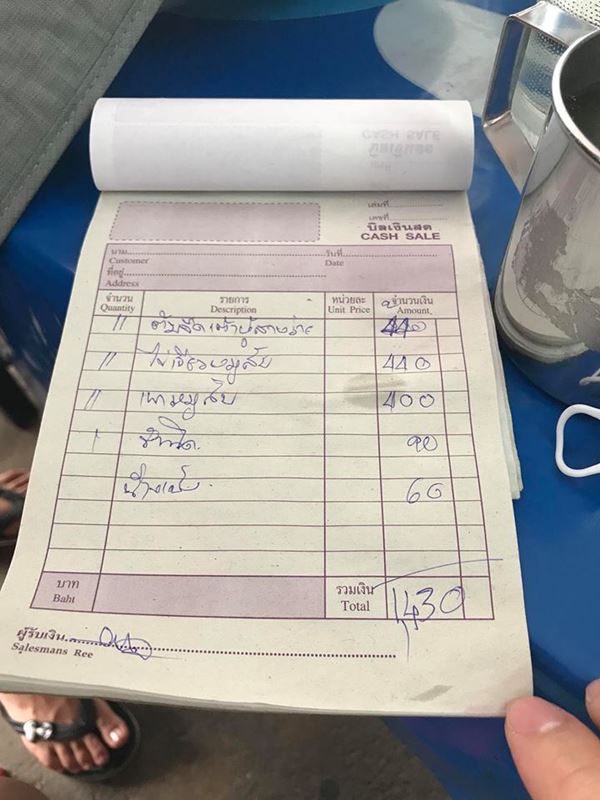 CASH SALE
บิลเงินสด
เล่มที่
เลขที่
บิลเงินสด
CASH SALE
นาม
Customer
วันที่
Date
ที่อยู่
Address
จำนวน รายการ หน่วยละ จำนวนเงิน
Quantity Description Unit Price Amount
11 440
11 ไข่เจียวหมูสับ 440
11 400
1 90
60
บาท รวมเงิน 1,430
Baht Total
ผู้รับเงิน
Salesmans Ree